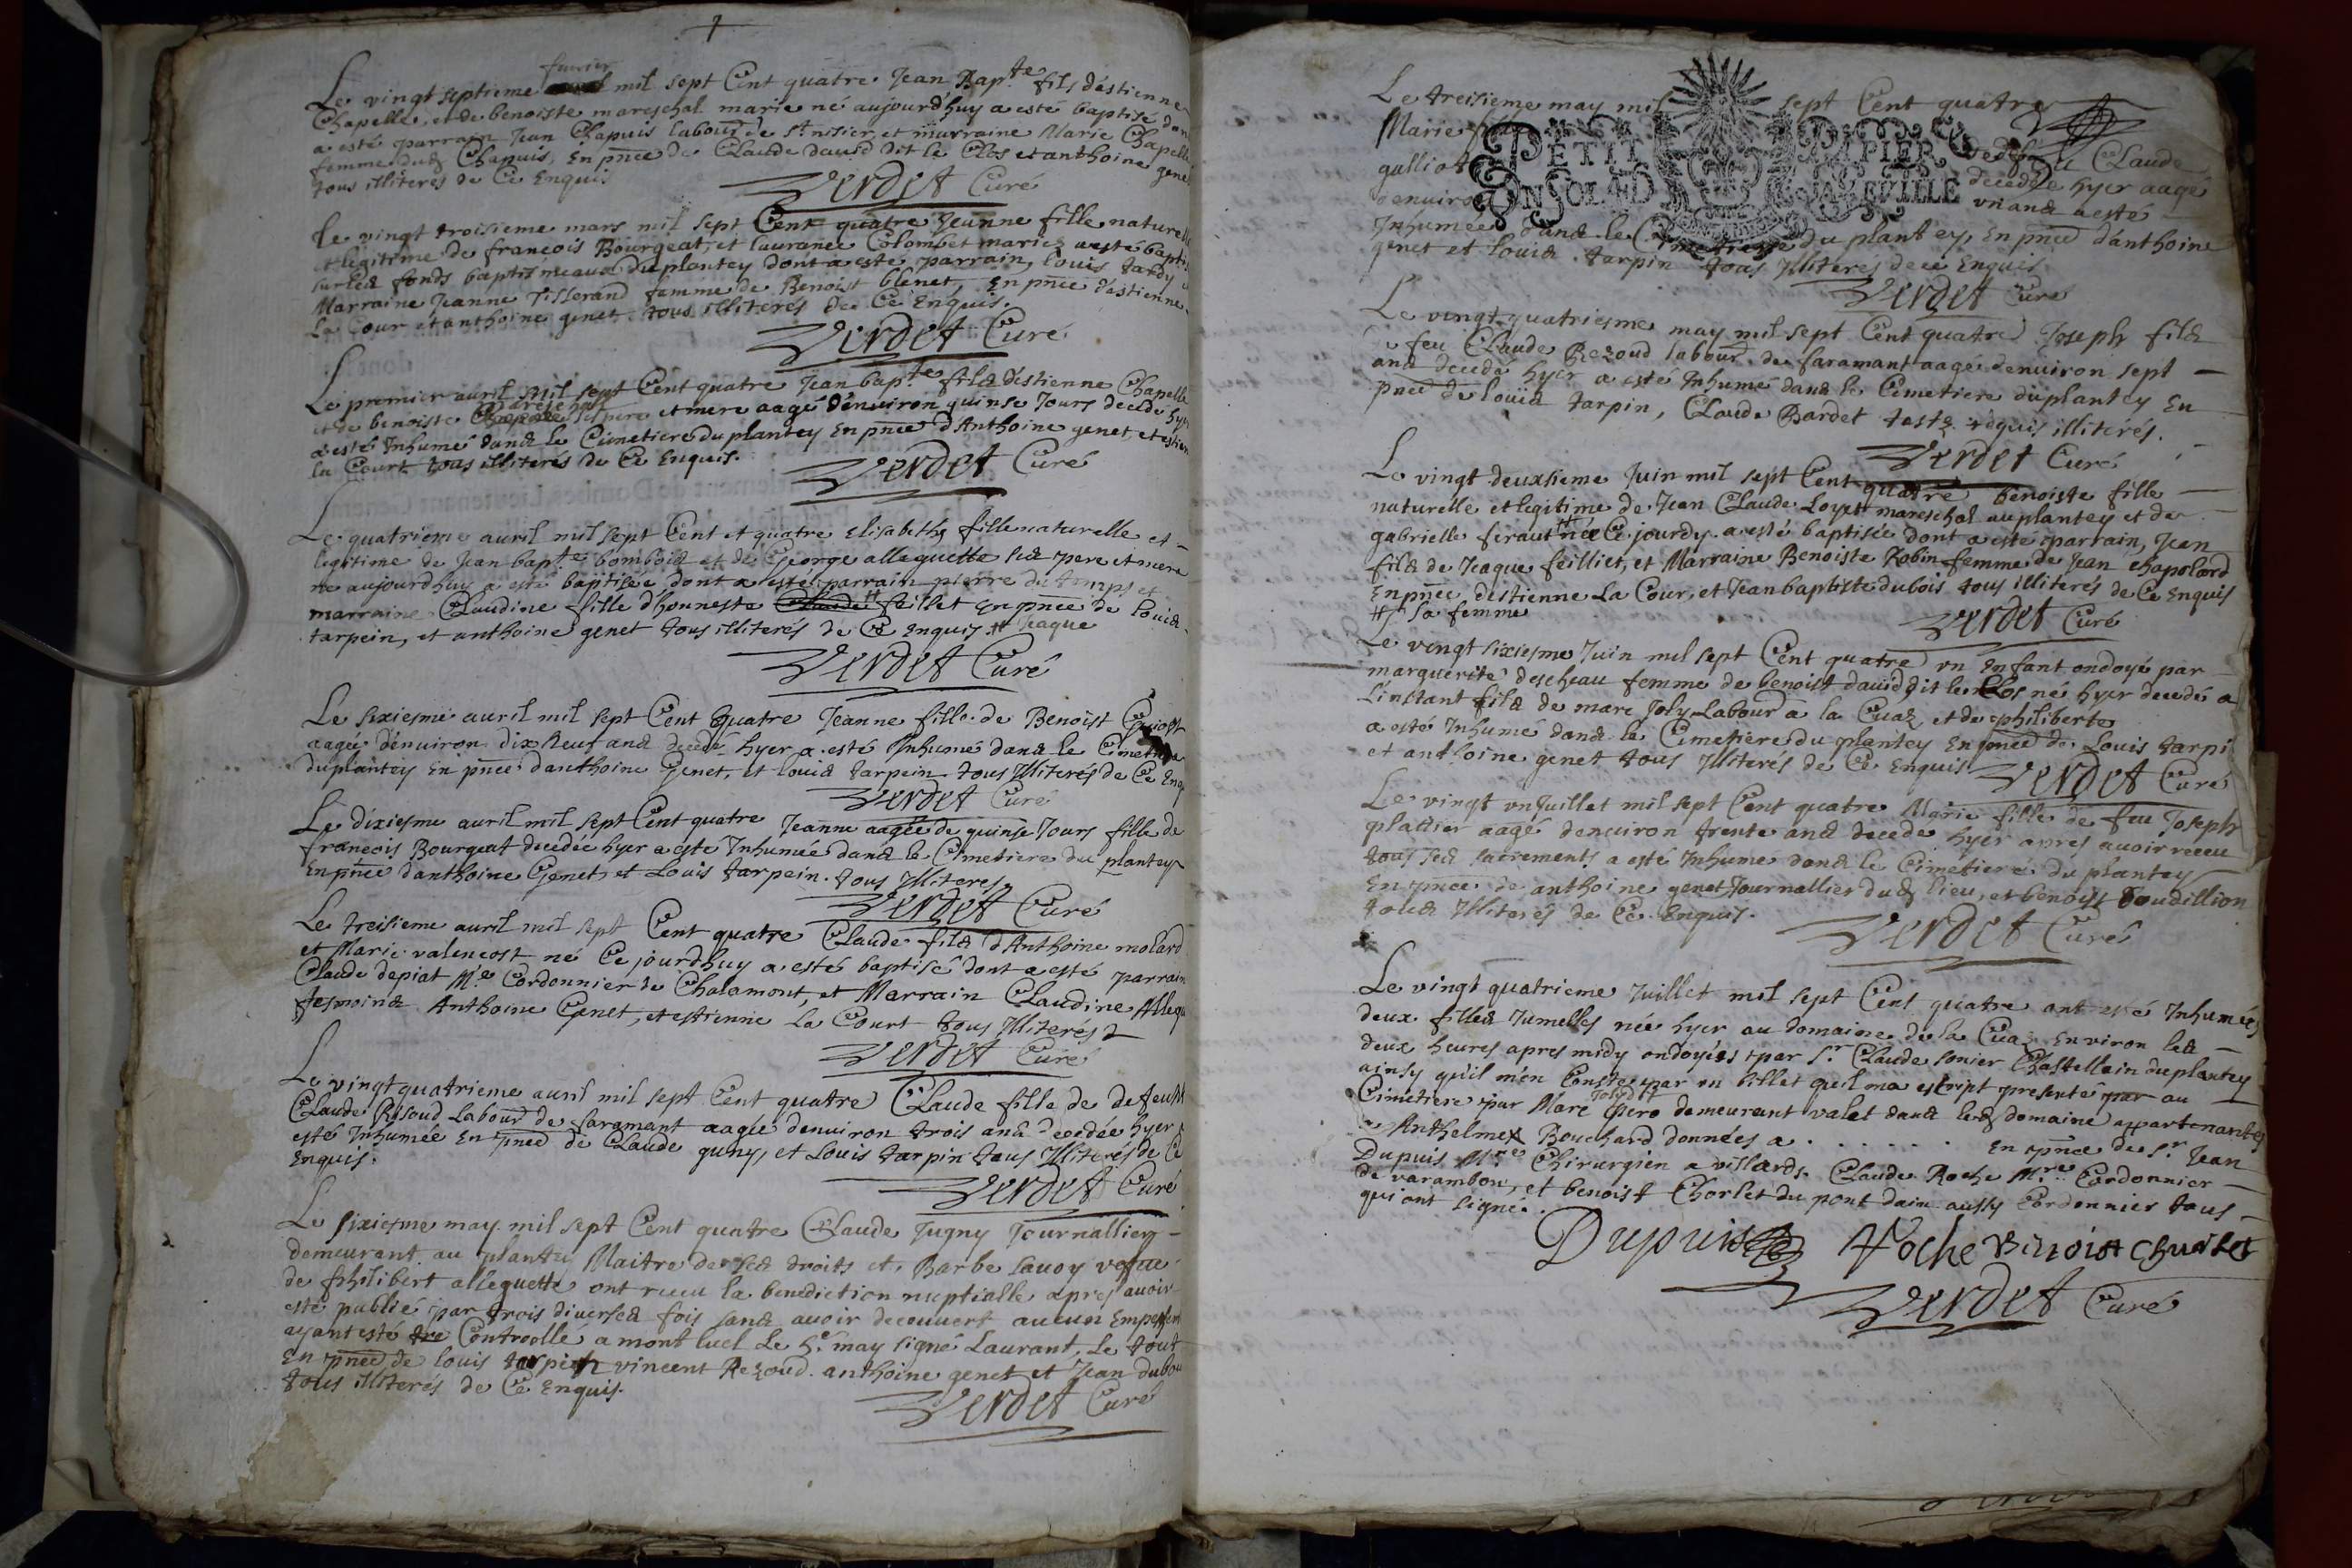 Le vingt septieme fevrier mil sept Cent quatre Jean Bapte fils d'estienne
Chapelle, et de benoiste mareschal marié né aujourd'huy a esté baptisé dont
a esté parrain Jean Chapuis labour de st nisier, et marraine Marie Chapelle
femme dud Chapuis, En pnce de Claude david dit le Clos et anthoine genet
tous illiterés de Ce Enquis
Verdet Curé
Le vingt troisieme mars mil sept Cent quatre Jeanne fille naturelle
et legitime de françois Bourgeat, et laurance Colombet mariez a esté baptisée
sur les fonds baptismeaux du plantey dont a esté parrain, louis tardy et
Marraine Jeanne Tisserand femme de Benoist blenet, En pnce d'estienne
La Cour et anthoine genet tous illiterés de Ce Enquis.
Verdet Curé
Le premier auril mil sept Cent quatre Jean bapte fils d'estienne Chapelle
et de benoiste mareschal ses pere et mere aagé d'enuiron quinse Jours decedé hyer
a esté Inhumé dans le Cimetiere du plantey En pnce d'Anthoine genet, et estienne
la Court tous illiterés de Ce Enquis.
Verdet Curé
Le quatrieme auril mil sept Cent et quatre Elisabeth fille naturelle et
legitime de Jean bapte bombois et de George alleguette ses pere et mere
né aujourdhuy a esté baptisée dont a esté parrain pierre du temps et
marraine Claudine fille d'honneste # feillet En pnce de Louis
tarpein, et anthoine genet tous illiterés de Ce Enquis. # Jaque
Verdet Curé
Le sixiesme auril mil sept Cent quatre Jeanne fille de Benoist
aagée d'enuiron dix neuf ans decedé hyer a esté Inhumé dans le Cimetiere
du plantey En pnce d'anthoine Genet, et louis tarpein tous Illiterés de Ce Enq
Verdet Curé
Le dixiesme auril mil sept Cent quatre Jeanne aagée de quinse Jours fille de
françois Bourgeat decedée hyer a esté Inhumée dans le Cimetiere du plantey
En pnce d'anthoine Genet, et Louis tarpein. tous Illiteres
Verdet Curé
Le treisieme auril mil sept Cent quatre Claude fils d'Anthoine molard
et Marie valencost né Ce jourdhuy a esté baptisé dont a esté parrain
Claude depiat Me Cordonnier de Chalamont, et Marrain Claudine Allegu
tesmoins Anthoine Genet, et estienne la Court tous Illiterés
Verdet Curé
Le vingt quatrieme auril mil sept Cent quatre Claude fille de defeunt
Claude Resoud Labour de faramant aagée denuiron trois ans decedée hyer a
esté Inhumée En pnce de Claude guny, et Louis tarpin tous Illiterés de Ce
Enquis.
Verdet Curé
Le sixiesme may mil sept Cent quatre Claude Jugny Journallier
demeurant au plantey Maitre de ses droits et Barbe sauoy vefue
de philibert alleguette ont receu la benediction nuptialle apres auoir
esté publié par trois diverses fois sans avoir decouvert aucun Empeschem
ayant esté Controollé a mont luel Le 5e may signé Laurant. Le tout
En pnce de louis tarpin vincent Rezoud. anthoine genet et Jean dubou
tous illiterés de Ce Enquis.
Verdet Curé
Le treisieme may mil sept Cent quatre
Marie
Claude
galliot decedée hyer aagé
denuiron un ans a esté
PETIT PAPIER
UN SOL 4 D LA FEUILLE
Inhumée dans le Cimetiere du plantey, En pnce d'anthoine
genet et louis tarpin tous Illiterés de ce Enquis
Verdet Curé
Le vingt quatriesme may mil sept Cent quatre Joseph fils
feu Claude Rezoud labour de faramant aagé denuiron sept
ans decedé hyer a esté Inhumé dans le Cimetiere du plantey En
pnce de louis tarpin, Claude Bardet test requis illiterés.
Verdet Curé
Le vingt deuxsieme Juin mil sept Cent quatre benoiste fille
naturelle et legitime de Jean Claude Loyet mareschal au plantey et de
gabrielle feraut # née Ce jourdy a esté baptisée dont a esté parrain, Jean
fils de Jeaque feilliet, et Marraine Benoiste Robin femme de Jean chapolard
En pnce, d'estienne La Cour, et Jean baptiste dubois tous illiterés de Ce Enquis
# sa femme
Verdet Curé
Le vingt sixiesme Juin mil sept Cent quatre un Enfant ondoyé par
marguerite descheau femme de benoist david dit le Clos né hyer decedé a
L'instant fils de marc Joly Labour a la Cuaz et de philiberte
a esté Inhumé dans le Cimetiere du plantey En pnce de Louis tarpi
et anthoine genet tous Illiterés de Ce Enquis
Verdet Curé
Le vingt un Juillet mil sept Cent quatre Marie fille de feu Joseph
plattier aagé denuiron trente ans decedé hyer apres auoir receu
tous ses sacrements a esté Inhumé dans le Cimetiere du plantey
En pnce de anthoine genet Journallier dud lieu, et benoist Boudillion
tous Illiterés de Ce Enquis.
Verdet Curé
Le vingt quatrieme Juillet mil sept Cent quatre ont esté Inhumées
deux filles Jumelles née hyer au domaine de la Cuaz Environ les
deux heures apres midy ondoyées par Sr Claude sonier Chastellain du plantey
ainsy qu'il m'en Conste par un billet quil ma escript presenté par au
Cimetiere par Marc Joly dit pero demeurant valet dans led domaine appartenantes
a Anthelme Bouchard données a . . . . . . En pnce de Sr Jean
Dupuis Mre Chirurgien a villards. Claude Roche Mre Cordonnier
de varambon, et benoist Chorlet du pont dain aussy Cordonnier tous
qui ont signé.
Dupuis Roche Benoist Chuarlet
Verdet Curé